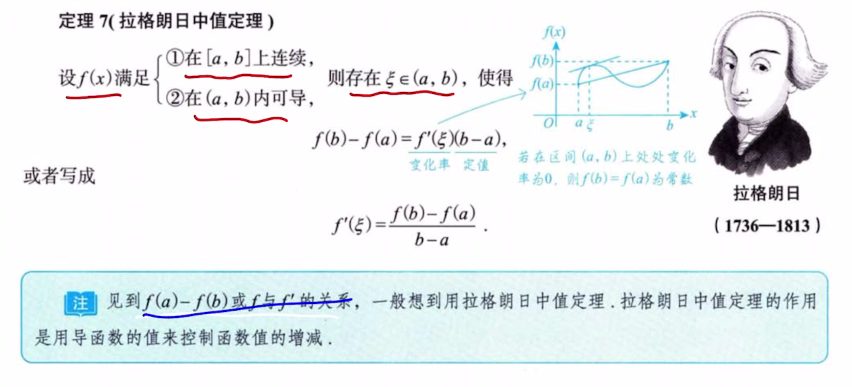 定理 7(拉格朗日中值定理)
设f(x)满足{①在[a, b]上连续，
②在(a, b)内可导，
则存在 ξ∈(a, b)，使得
f(b)-f(a)=f′(ξ)(b-a),
变化率 定值
f(x)
f(b)
f(a)
O a ξ b x
若在区间(a, b)上处处变化
率为0，则f(b)=f(a)为常数
拉格朗日
(1736—1813)
或者写成
f′(ξ)=\frac{f(b)-f(a)}{b-a}.
注 见到f(a)-f(b)或f与f′的关系，一般想到用拉格朗日中值定理.拉格朗日中值定理的作用
是用导函数的值来控制函数值的增减.